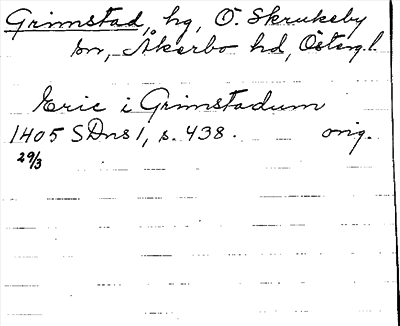 Grimstad, hg, Ö. Skrukeby
sn, Åkerbo hd, Österg.l.
Eric i Grimstadum
1405 SDns 1, s. 438. orig.
29/3